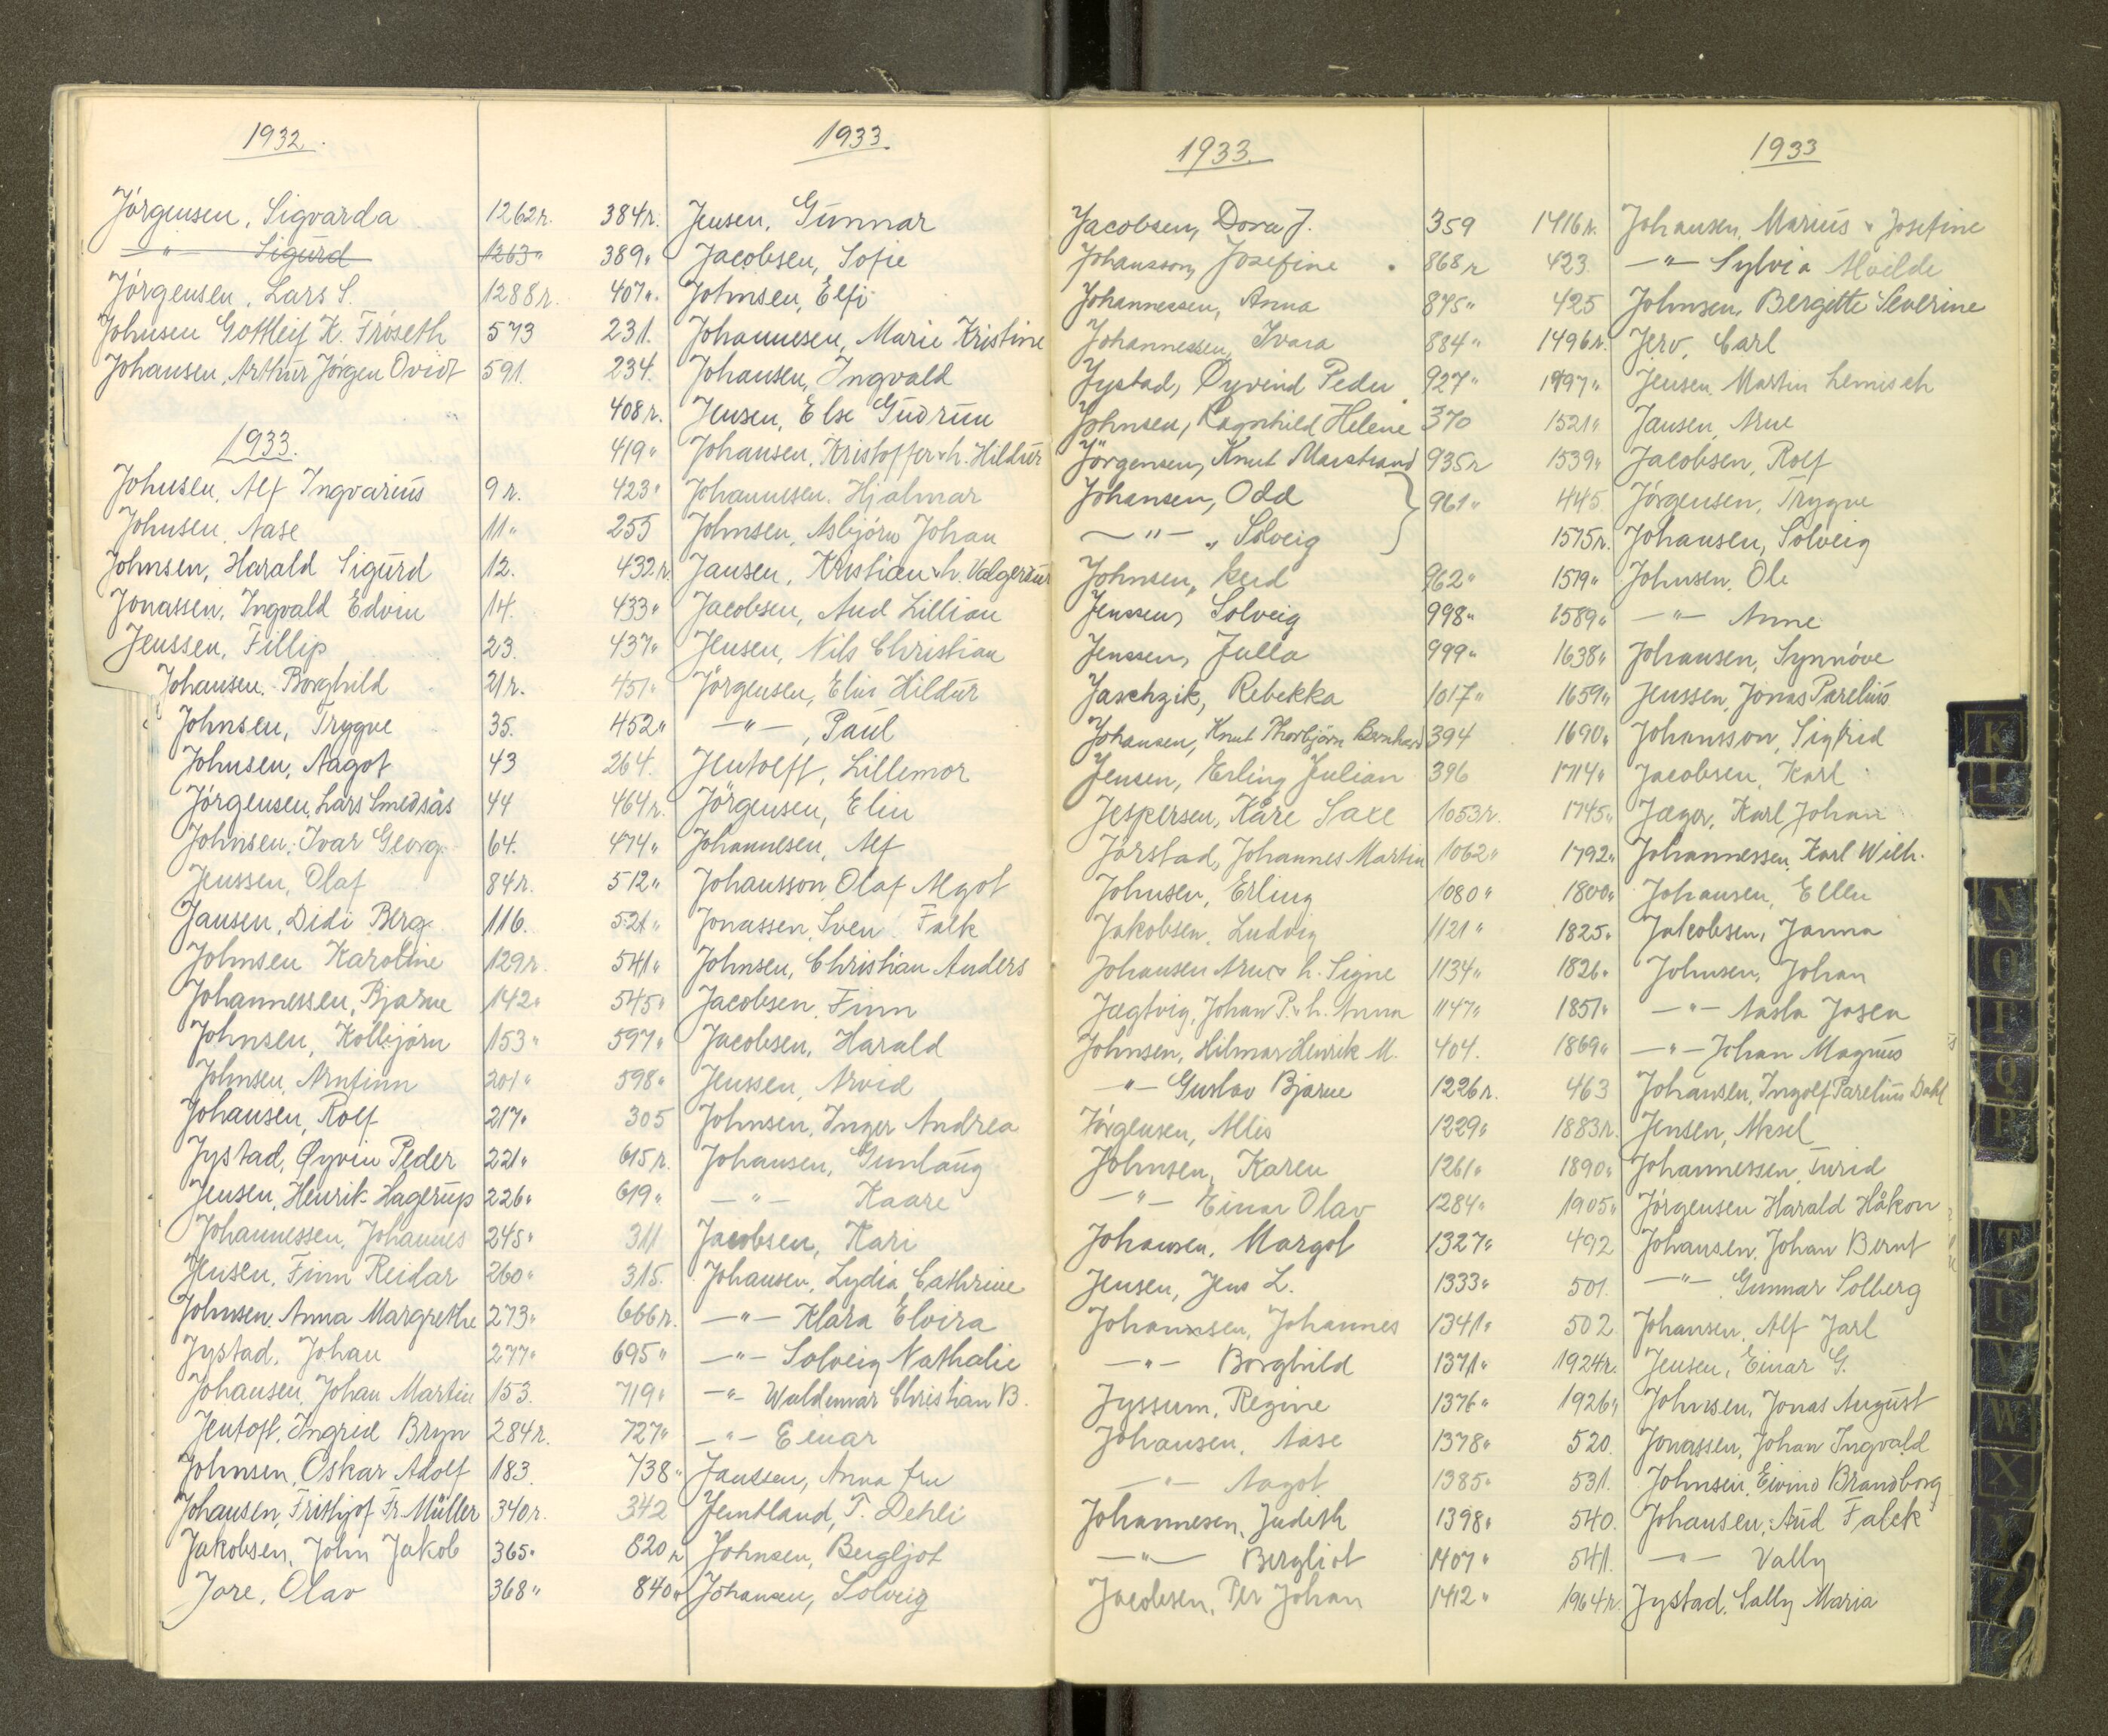 1932.
Jörgensen, Sigvarda 1262 r.
—"— Sigurd 1263 "
Jörgensen, Lars S. 1288 r.
Johnsen Gottleif K. Fröseth 573
Johansen, Arthur Jörgen Ovidt 591.
1933.
Johnsen, Alf Ingvarius 9 r.
Johnsen, Aase 11 "
Johnsen, Harald Sigurd 12.
Jonassen, Ingvald Edvin 14.
Jenssen, Fillip 23.
Johansen, Borghild 21 r.
Johnsen, Trygve 35.
Johnsen, Aagot 43
Jörgensen, Lars Smedsås 44
Johnsen, Ivar Georg. 64.
Jenssen, Olaf 84 r.
Jansen, Didi Berg 116.
Johnsen Karoline 129 r.
Johannessen, Bjarne 142 "
Johnsen, Kolbjörn 153 "
Johnsen, Arnfinn 201 "
Johansen, Rolf 217 "
Jystad, Øyvin Peder 221 "
Jensen, Henrik Hagerup 226 "
Johannessen, Johannes 245 "
Jensen, Finn Reidar 260 "
Johnsen, Anna Margrethe 273 "
Jystad, Johan 277 "
Johansen, Johan Martin 153.
Jentoft, Ingrid Bryn 284 r.
Johnsen, Oskar Adolf 183.
Johansen, Frithjof Fr. Müller 340 r.
Jakobsen, John Jakob 365 "
Jore, Olav 368 "
1933.
384 r. Jensen, Gunnar
389 " Jacobsen, Sofie
407 " Johnsen, Elfi
231. Johannesen, Marie Kristine
234. Johansen, Ingvald
408 r. Jensen, Else Gudrun
419 " Johansen, Kristoffer & h. Hildur
423 " Johannesen, Hjalmar
255 Johnsen, Asbjörn Johan
432 r. Jansen, Kristian & h. Valgerdur
433 " Jacobsen, Aud Lillian
437 " Jensen, Nils Christian
451 " Jörgensen, Elin Hildur
452 " —"—, Paul
264. Jentoft, Lillemor
464 r. Jörgensen, Elin
474 " Johannesen, Alf
512 " Johansson Olaf Algot
521 " Jonassen, Sven Falk
541 " Johnsen, Christian Anders
545 " Jacobsen, Finn
597 " Jacobsen, Harald
598 " Jenssen, Arvid
305 Johnsen, Inger Andrea
615 r. Johansen, Gunlaug
619 " —"— Kaare
311 Jacobsen, Kari
315. Johansen, Lydia Cathrine
666 r. —"— Klara Elvira
695 " —"— Solveig Nathalie
719 " —"— Waldemar Christian B.
727 " —"— Einar
738 " Janssen, Anna fru
342 Jemtland, T. Dehli
820 r Johnsen, Bergljot
840 " Johansen, Solveig
1933.
Jacobsen, Dora J. 359
Johansson, Josefine 868 r
Johannessen, Anna 875 "
Johannessen, Ivara 884 "
Jystad, Øyvind Peder 927 "
Johnsen, Ragnhild Helene 370
Jörgensen, Knut Marstrand 935 r
Johansen, Odd 961 "
—"— " Solveig
Johnsen, 962 "
Jenssen, Solveig 998 "
Jenssen, Julla 999 "
Jaschzik, Rebekka 1017 "
Johansen, Knut Thorbjörn Bernhard 394
Jensen, Erling Julian 396
Jespersen, Kåre Saxe 1053 r.
Jörstad, Johannes Martin 1062 "
Johnsen, Erling 1080 "
Jakobsen, Ludvig 1121 "
Johansen Arne & h. Signe 1134 "
Jægtvig, Johan P. & h. Anna 1147 "
Johnsen, Hilmar Henrik M. 404.
—"— Gustav Bjarne 1226 r.
Jörgensen, Allis 1229 "
Johnsen, Karen 1261 "
—"— Einar Olav 1284 "
Johansen, Margot 1327 "
Jensen, Jens L. 1333 "
Johannsen, Johannes 1341 "
—"— Borghild 1371 "
Jyssum, Regine 1376 "
Johansen, Aase 1378 "
—"— Aagot 1385 "
Johannesen, Judith 1398 "
—"— Bergliot 1407 "
Jacobsen, Per Johan 1412 "
1933
1416 r. Johansen, Marius & Josefine
423 —"— Sylvia Alvilde
425 Johnsen, Bergitte Severine
1496 r. Jerv, Carl
1497 " Jensen, Martin
1521 " Jansen, Arne
1539 " Jacobsen, Rolf
445 Jörgensen, Trygve
1575 r. Johansen, Solveig
1579 " Johnsen, Ole
1589 " —"— Anne
1638 " Johansen, Synnöve
1659 " Jenssen, Jonas Parelius
1690 " Johansson, Sigfrid
1714 " Jacobsen, Karl
1745 " Jæger, Karl Johan
1792 " Johannessen, Karl Wilh.
1800 " Johansen, Ellen
1825 " Jakobsen, Janna
1826 " Johnsen, Johan
1851 " —"— Aasla Josea
1869 " —"— Johan Magnus
463 Johansen, Ingolf Parelius Dahl
1883 r. Jensen, Aksel
1890 " Johannessen, Turid
1905 " Jörgensen Harald Håkon
492 Johansen, Johan Bernt
501. —"— Gunnar Solberg
502 Johansen, Alf Jarl
1924 r. Jensen, Einar G.
1926 " Johnsen, Jonas August
520. Jonassen, Johan Ingvald
531. Johnsen, Eivind Brandborg
540. Johansen, Aud Falck
541. —"— Vally
1964 r. Jystad, Sally Maria
K
N
O
P
Q
R
T
U
V
W
X
Y
Z